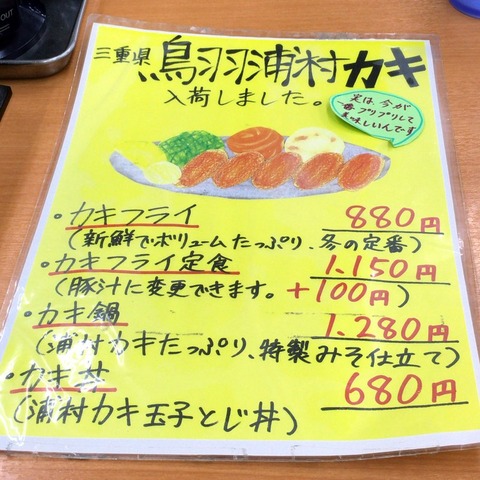 三重県 鳥羽浦村カキ
入荷しました。
実は今が
一番プリプリして
美味しいんです
・カキフライ 880円
(新鮮でボリュームたっぷり、冬の定番)
・カキフライ定食 1,150円
(豚汁に変更できます。+100円)
・カキ鍋 1,280円
(浦村カキたっぷり、特製みそ仕立て)
・カキ丼 680円
(浦村カキ玉子とじ丼)
OUT